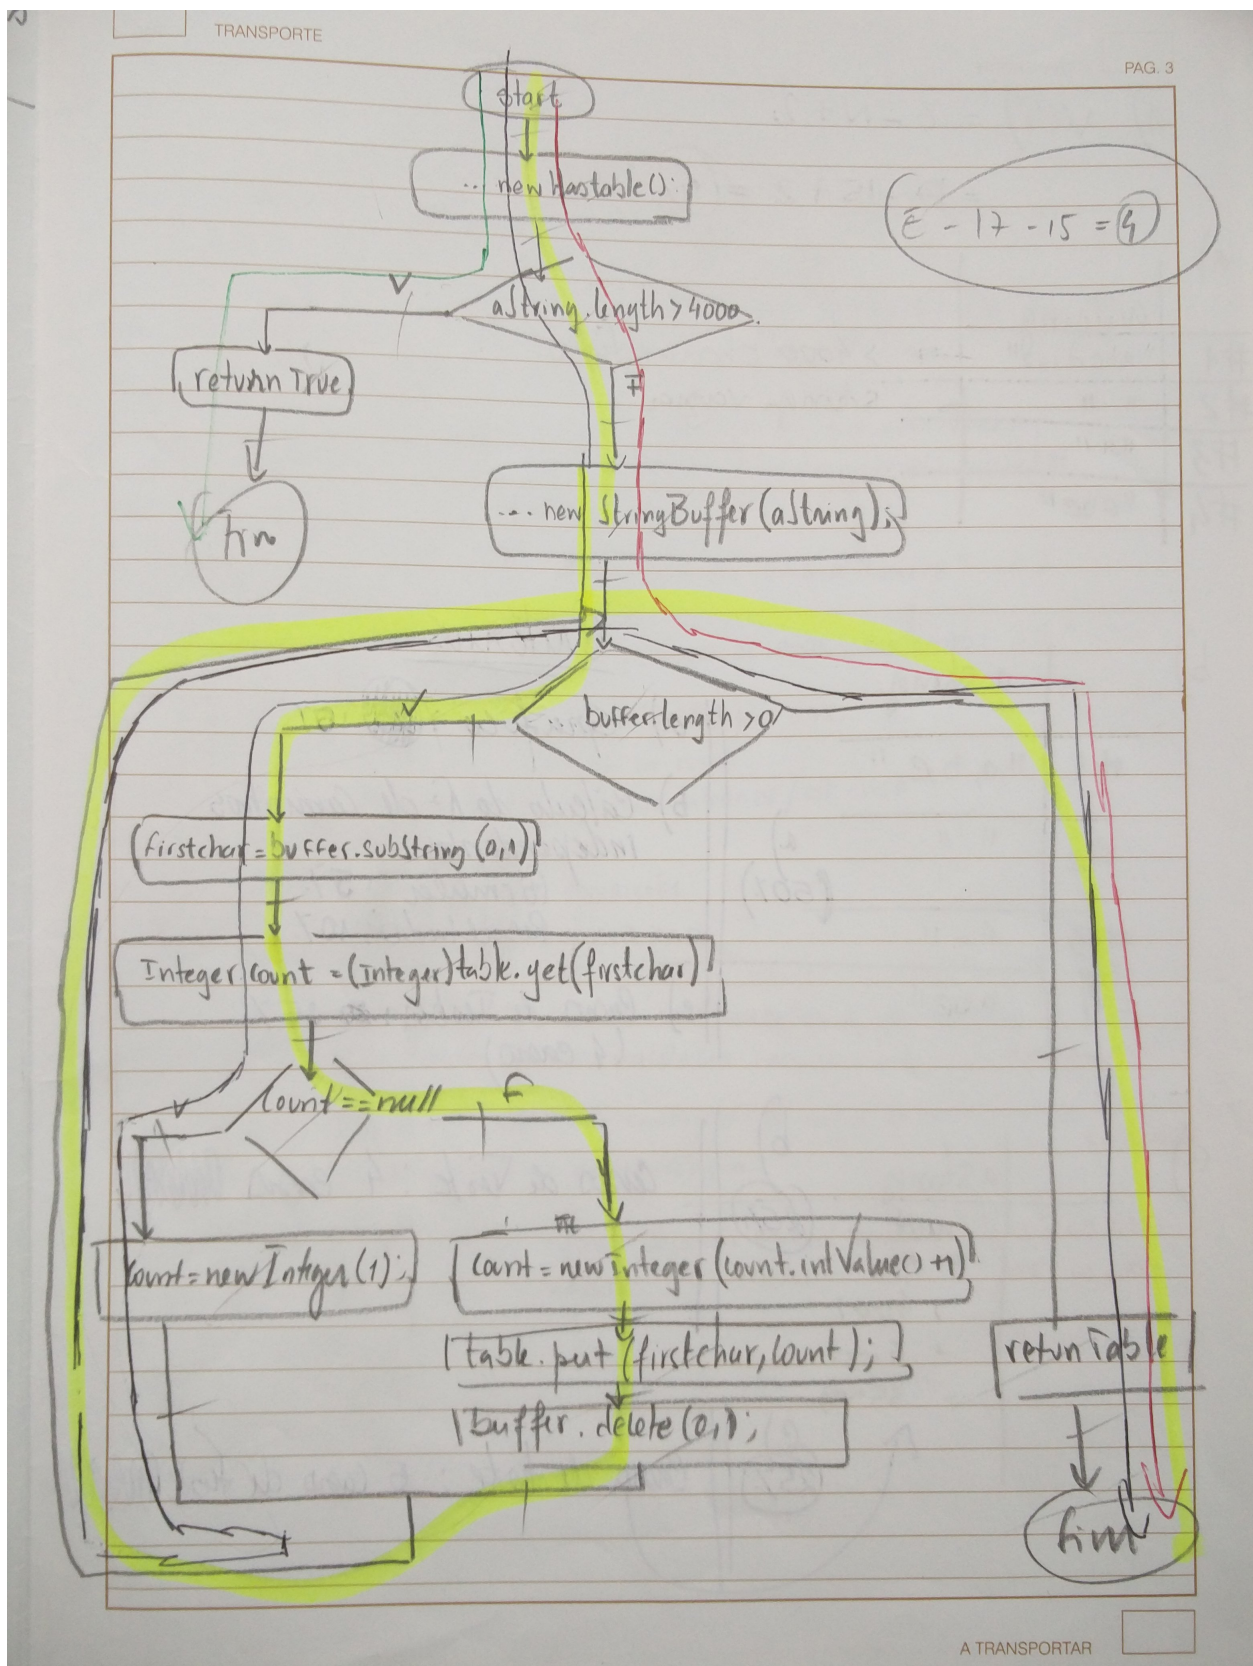 TRANSPORTE
PAG. 3
start
... new hastable();
E - 17 - 15 = 4
V
aString.length > 4000
return True
F
fim
.... new StringBuffer(aString);
V
buffer.length > 0
firstchar = buffer.substring (0,1)
Integer count = (Integer) table.get(firstchar)
V
count == null
F
count = new Integer (1);
count = new integer (count.intValue() + 1)
table.put (firstchar, count);
retun Table
buffer.delete (0,1);
fim
A TRANSPORTAR